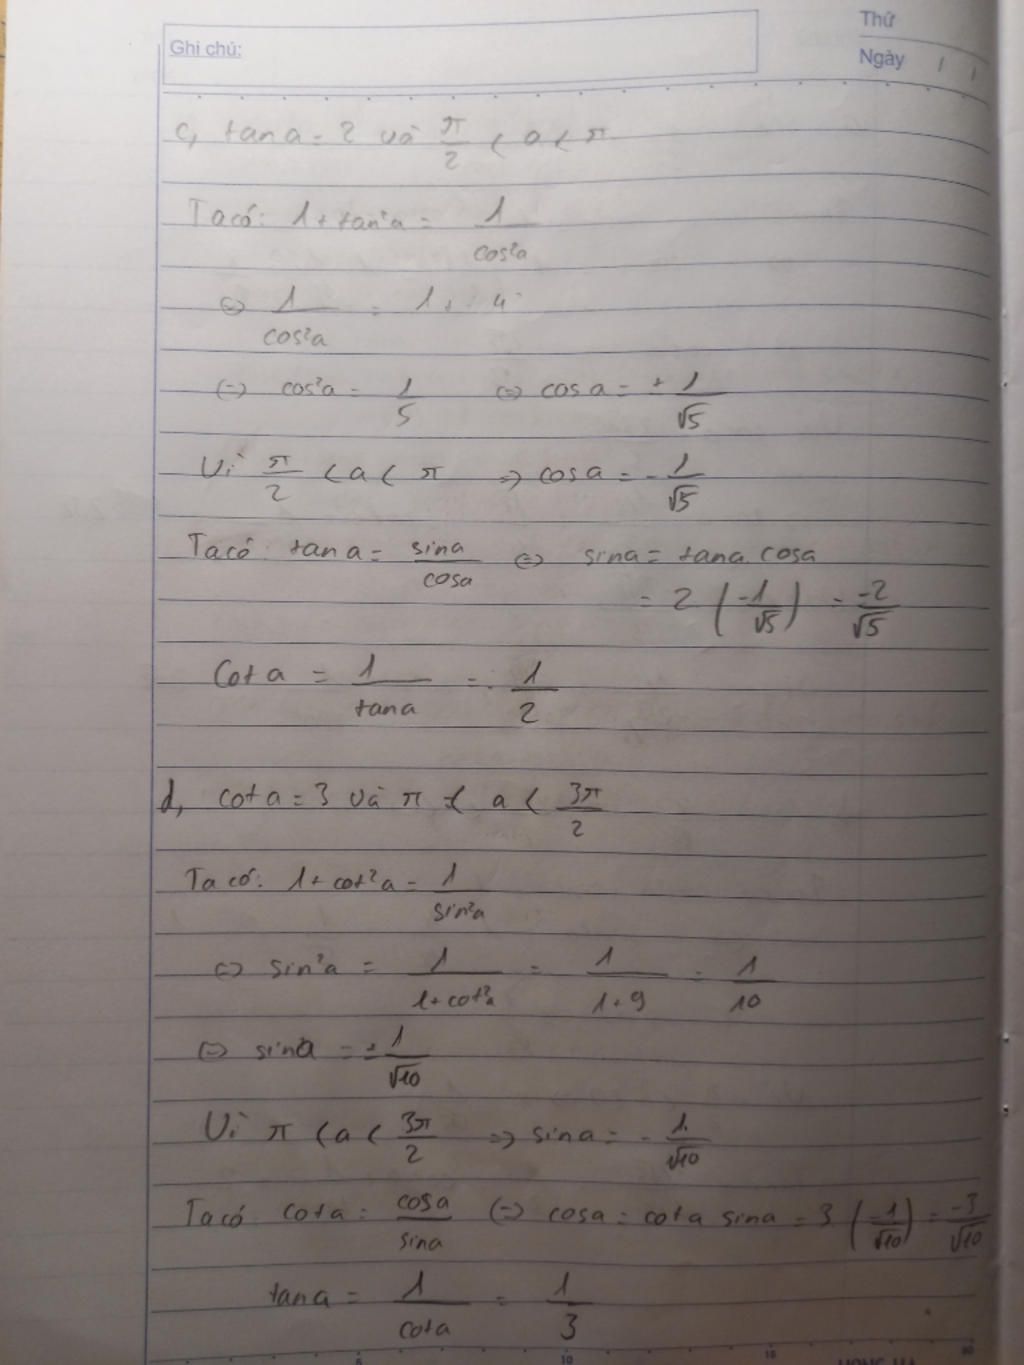 Thứ
Ghi chú:
Ngày
c, tan a = 2 và π/2 < a < π
Ta có: 1 + tan²a = 1/cos²a
⇔ 1/cos²a = 1 + 4
⇔ cos²a = 1/5 ⇔ cos a = ± 1/√5
Vì π/2 < a < π ⇒ cos a = - 1/√5
Ta có: tan a = sin a/cos a ⇔ sin a = tan a. cos a
= 2 (-1/√5) = -2/√5
Cot a = 1/tan a = 1/2
d, cot a = 3 và π < a < 3π/2
Ta có: 1 + cot²a = 1/sin²a
⇔ sin²a = 1/1 + cot²a = 1/1 + 9 = 1/10
⇔ sin a = ± 1/√10
Vì π < a < 3π/2 ⇒ sin a = - 1/√10
Ta có cot a = cos a/sin a ⇔ cos a = cot a sin a = 3 (-1/√10) = -3/√10
tan a = 1/cot a = 1/3
10
15